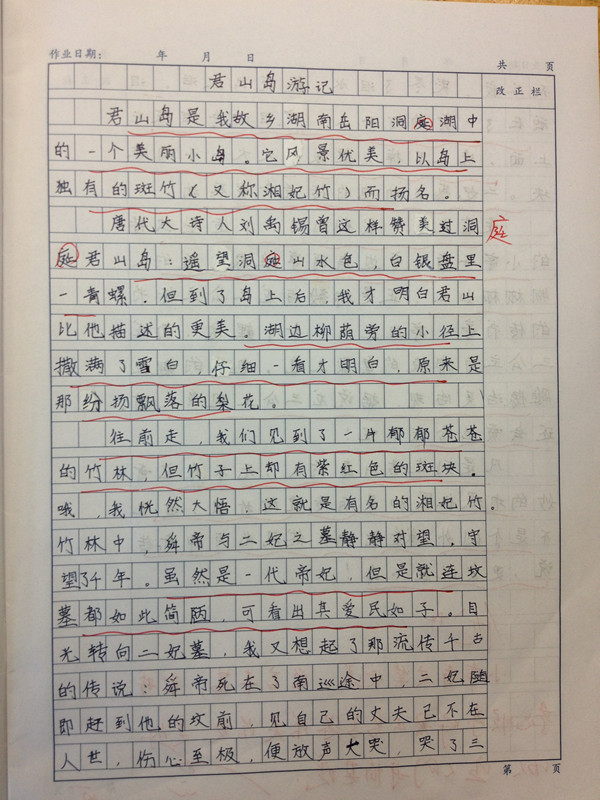 作业日期： 年 月 日
共 页
君山岛游记
改正栏
君山岛是我故乡湖南岳阳洞庭湖中
的一个美丽小岛。它风景优美，以岛上
独有的斑竹（又称湘妃竹）而扬名。
唐代大诗人刘禹锡曾这样赞美过洞
庭
庭君山岛：遥望洞庭山水色，白银盘里
一青螺。但到了岛上后，我才明白君山
比他描述的更美。湖边柳荫旁的小径上
撒满了雪白，仔细一看才明白，原来是
那纷扬飘落的梨花。
往前走，我们见到了一片郁郁苍苍
的竹林，但竹子上却有紫红色的斑块。
哦，我恍然大悟，这就是有名的湘妃竹。
竹林中，舜帝与二妃之墓静静对望，守
望了千年。虽然是一代帝妃，但是就连坟
墓都如此简陋，可看出其爱民如子。目
光转向二妃墓，我又想起了那流传千古
的传说：舜帝死在了南巡途中，二妃随
即赶到他的坟前，见自己的丈夫已不在
人世，伤心至极，便放声大哭，哭了三
第 页